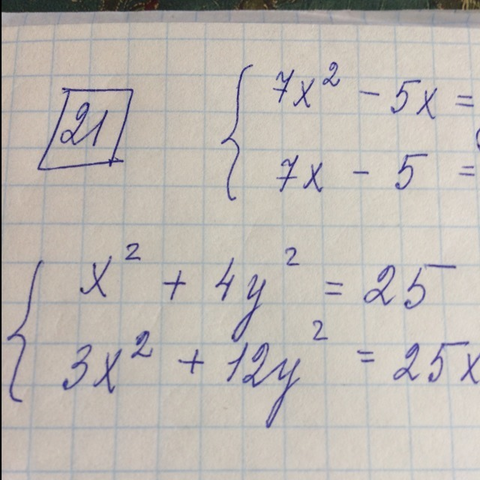 21
7x² - 5x =
7x - 5 =
x² + 4y² = 25
3x² + 12y² = 25x